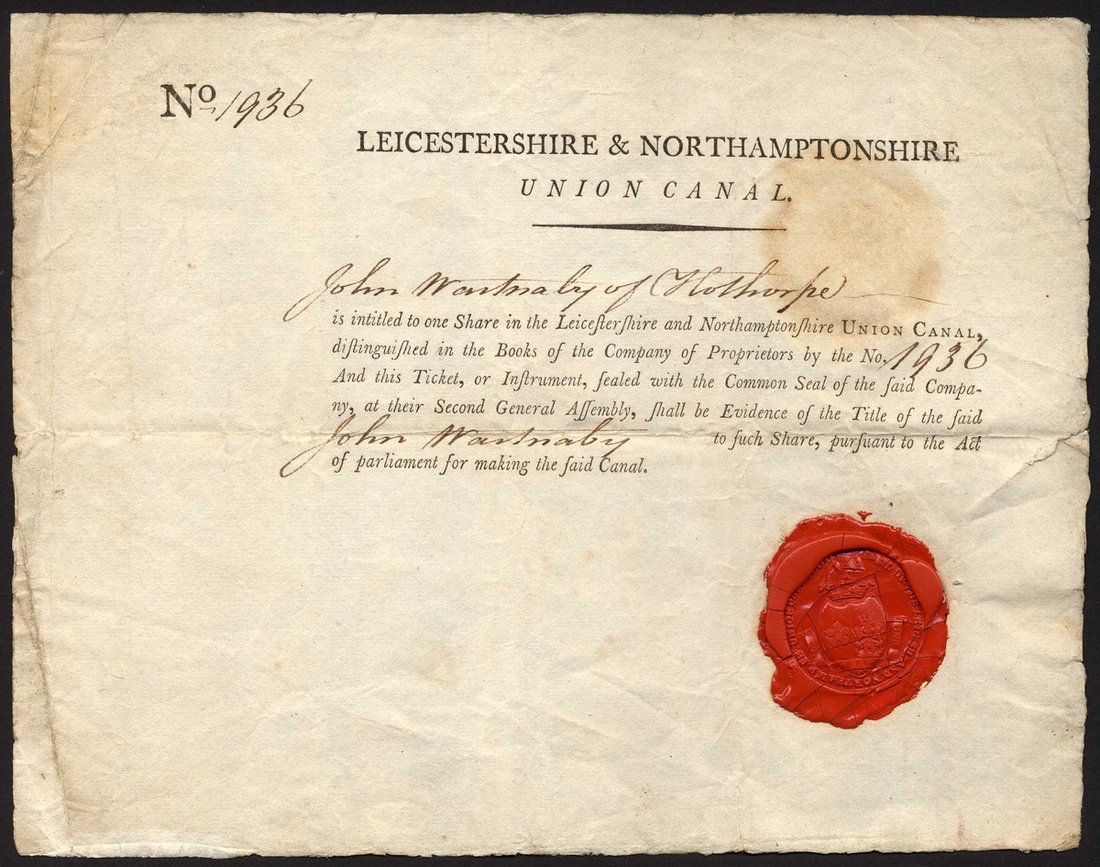 No. 1936
LEICESTERSHIRE & NORTHAMPTONSHIRE
UNION CANAL.
John Wartnaby of Hothorpe
is intitled to one Share in the Leiceſterſhire and Northamptonſhire UNION CANAL,
diſtinguiſhed in the Books of the Company of Proprietors by the No. 1936
And this Ticket, or Inſtrument, ſealed with the Common Seal of the ſaid Compa-
ny, at their Second General Aſſembly, ſhall be Evidence of the Title of the ſaid
John Wartnaby to ſuch Share, purſuant to the Act
of parliament for making the ſaid Canal.